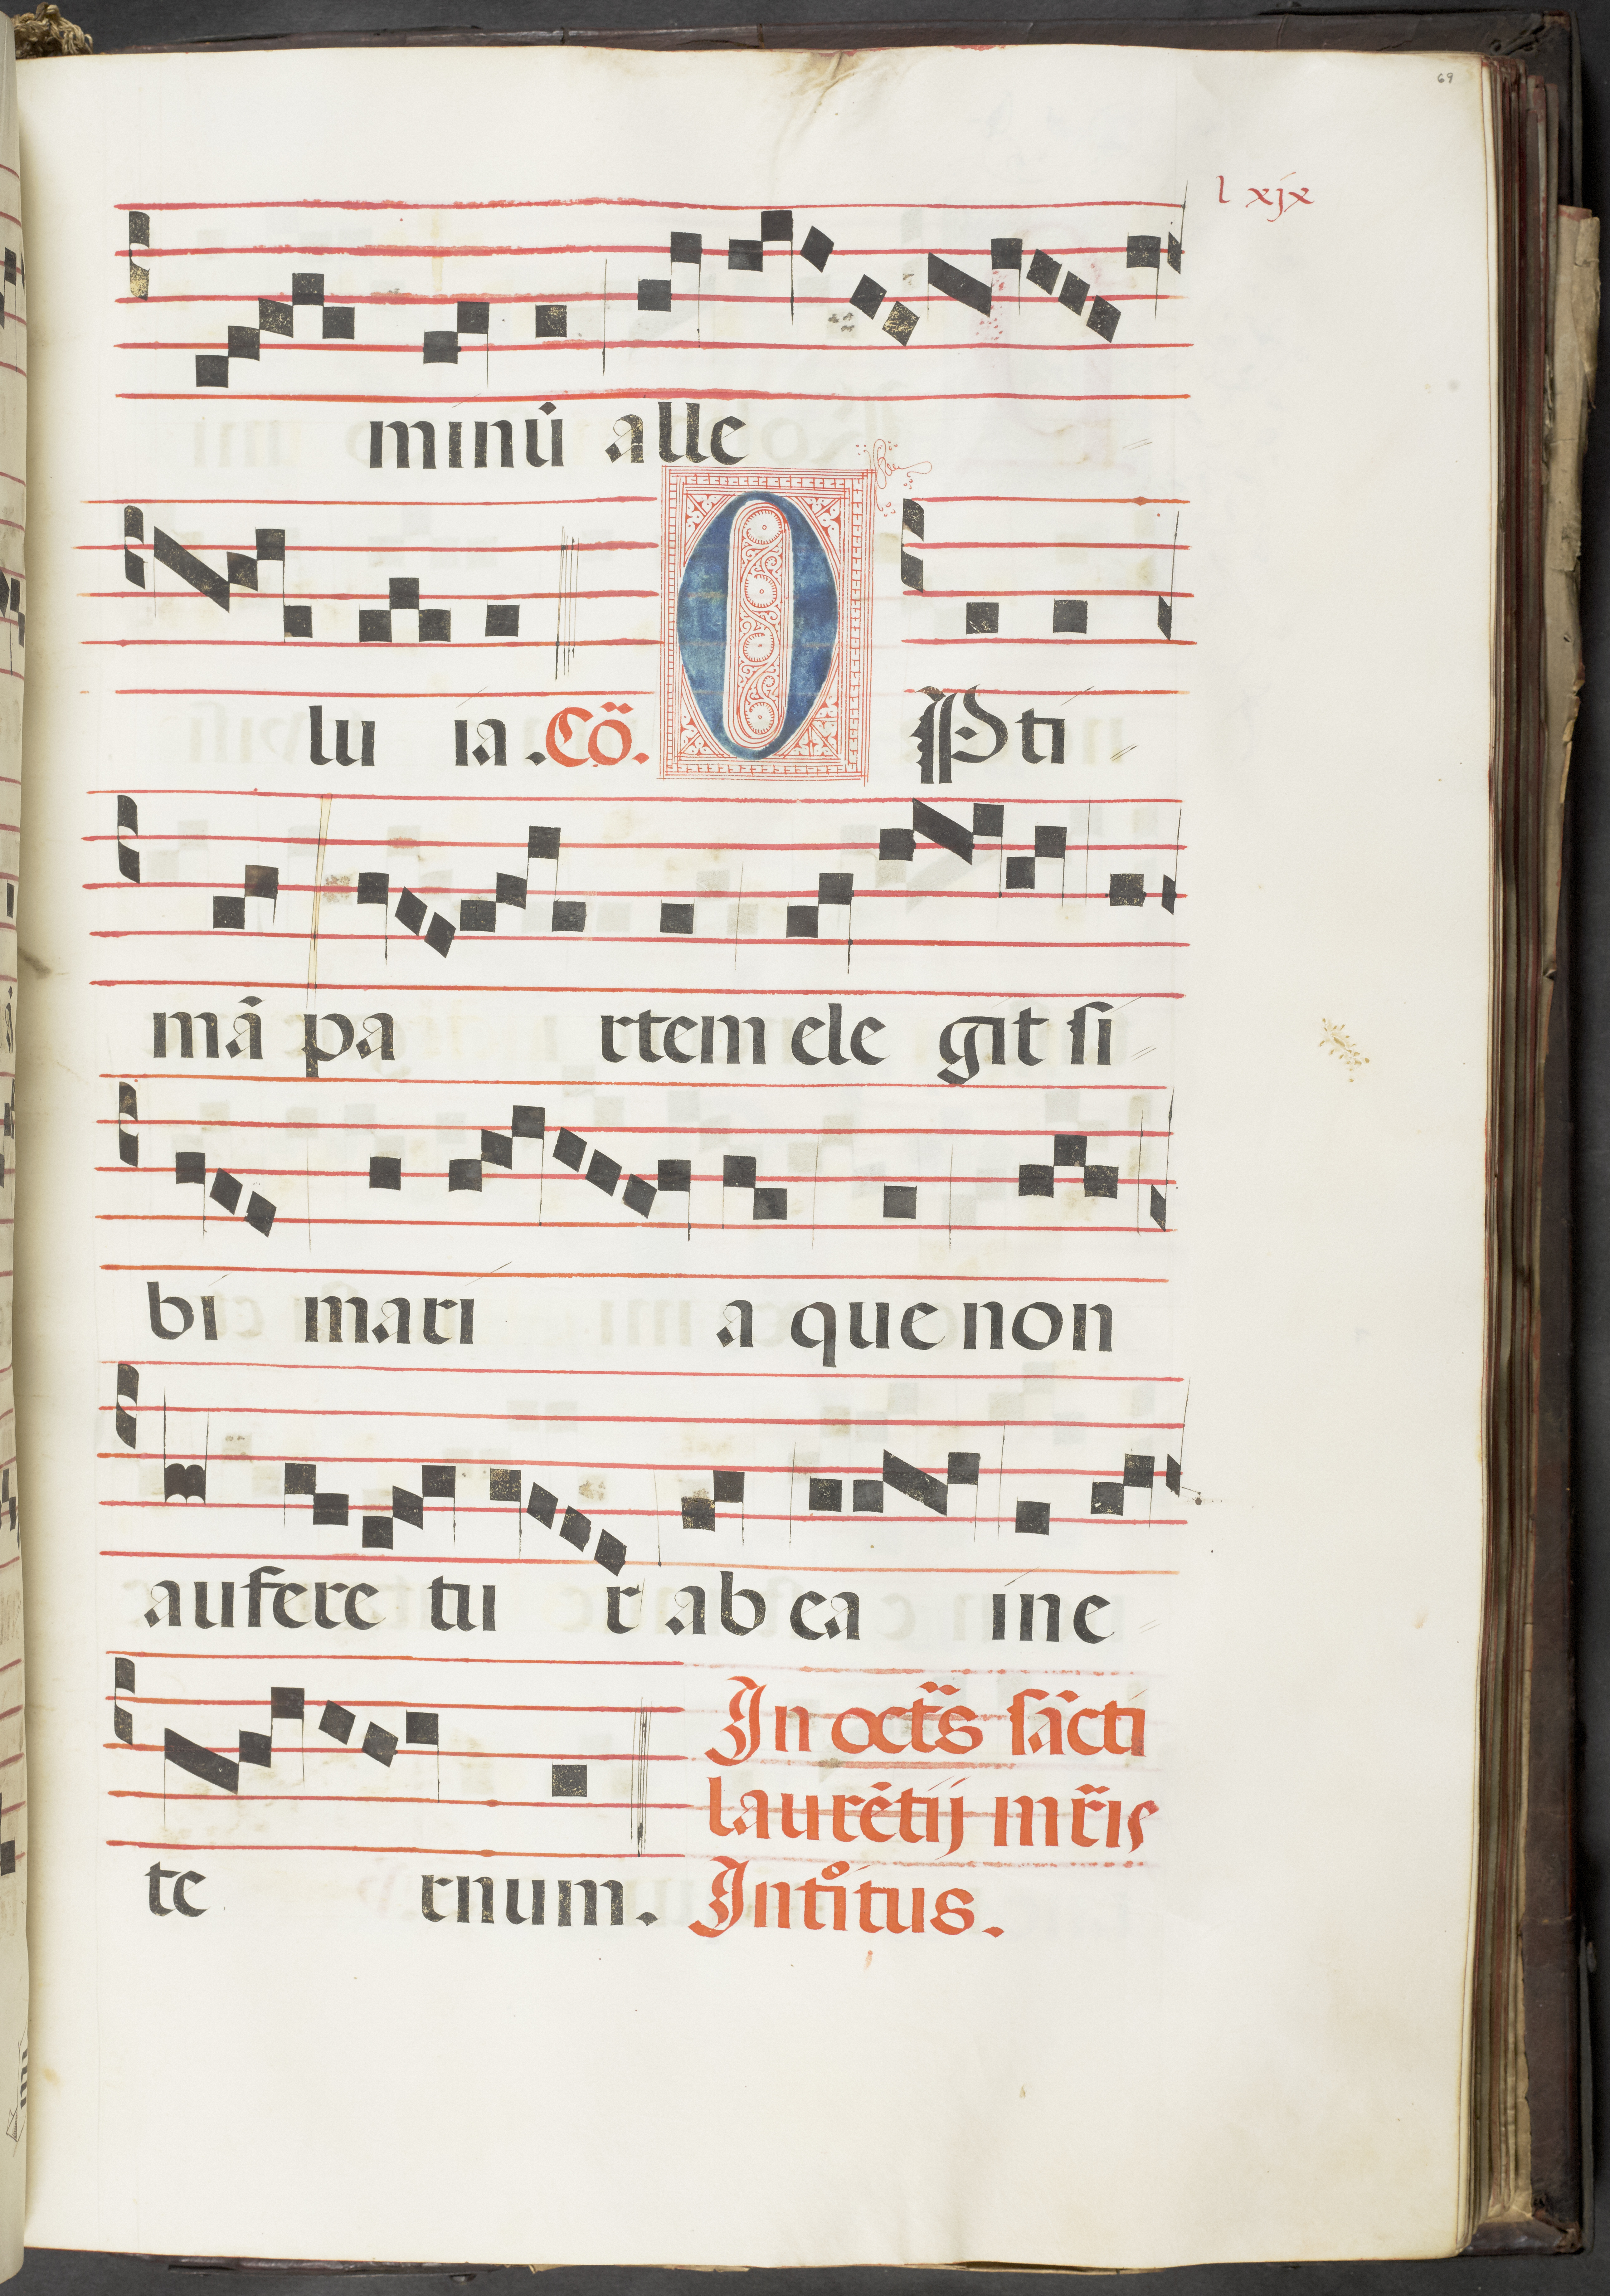 69
lxjx
minū alle
lu ia. Cō. O Pti
mā pa rtem ele git ſi
bi mari a que non
aufere tu r ab ea in e
te rnum. In octs̄ ſācti
laurētij mr̄is
Intᵒitus.